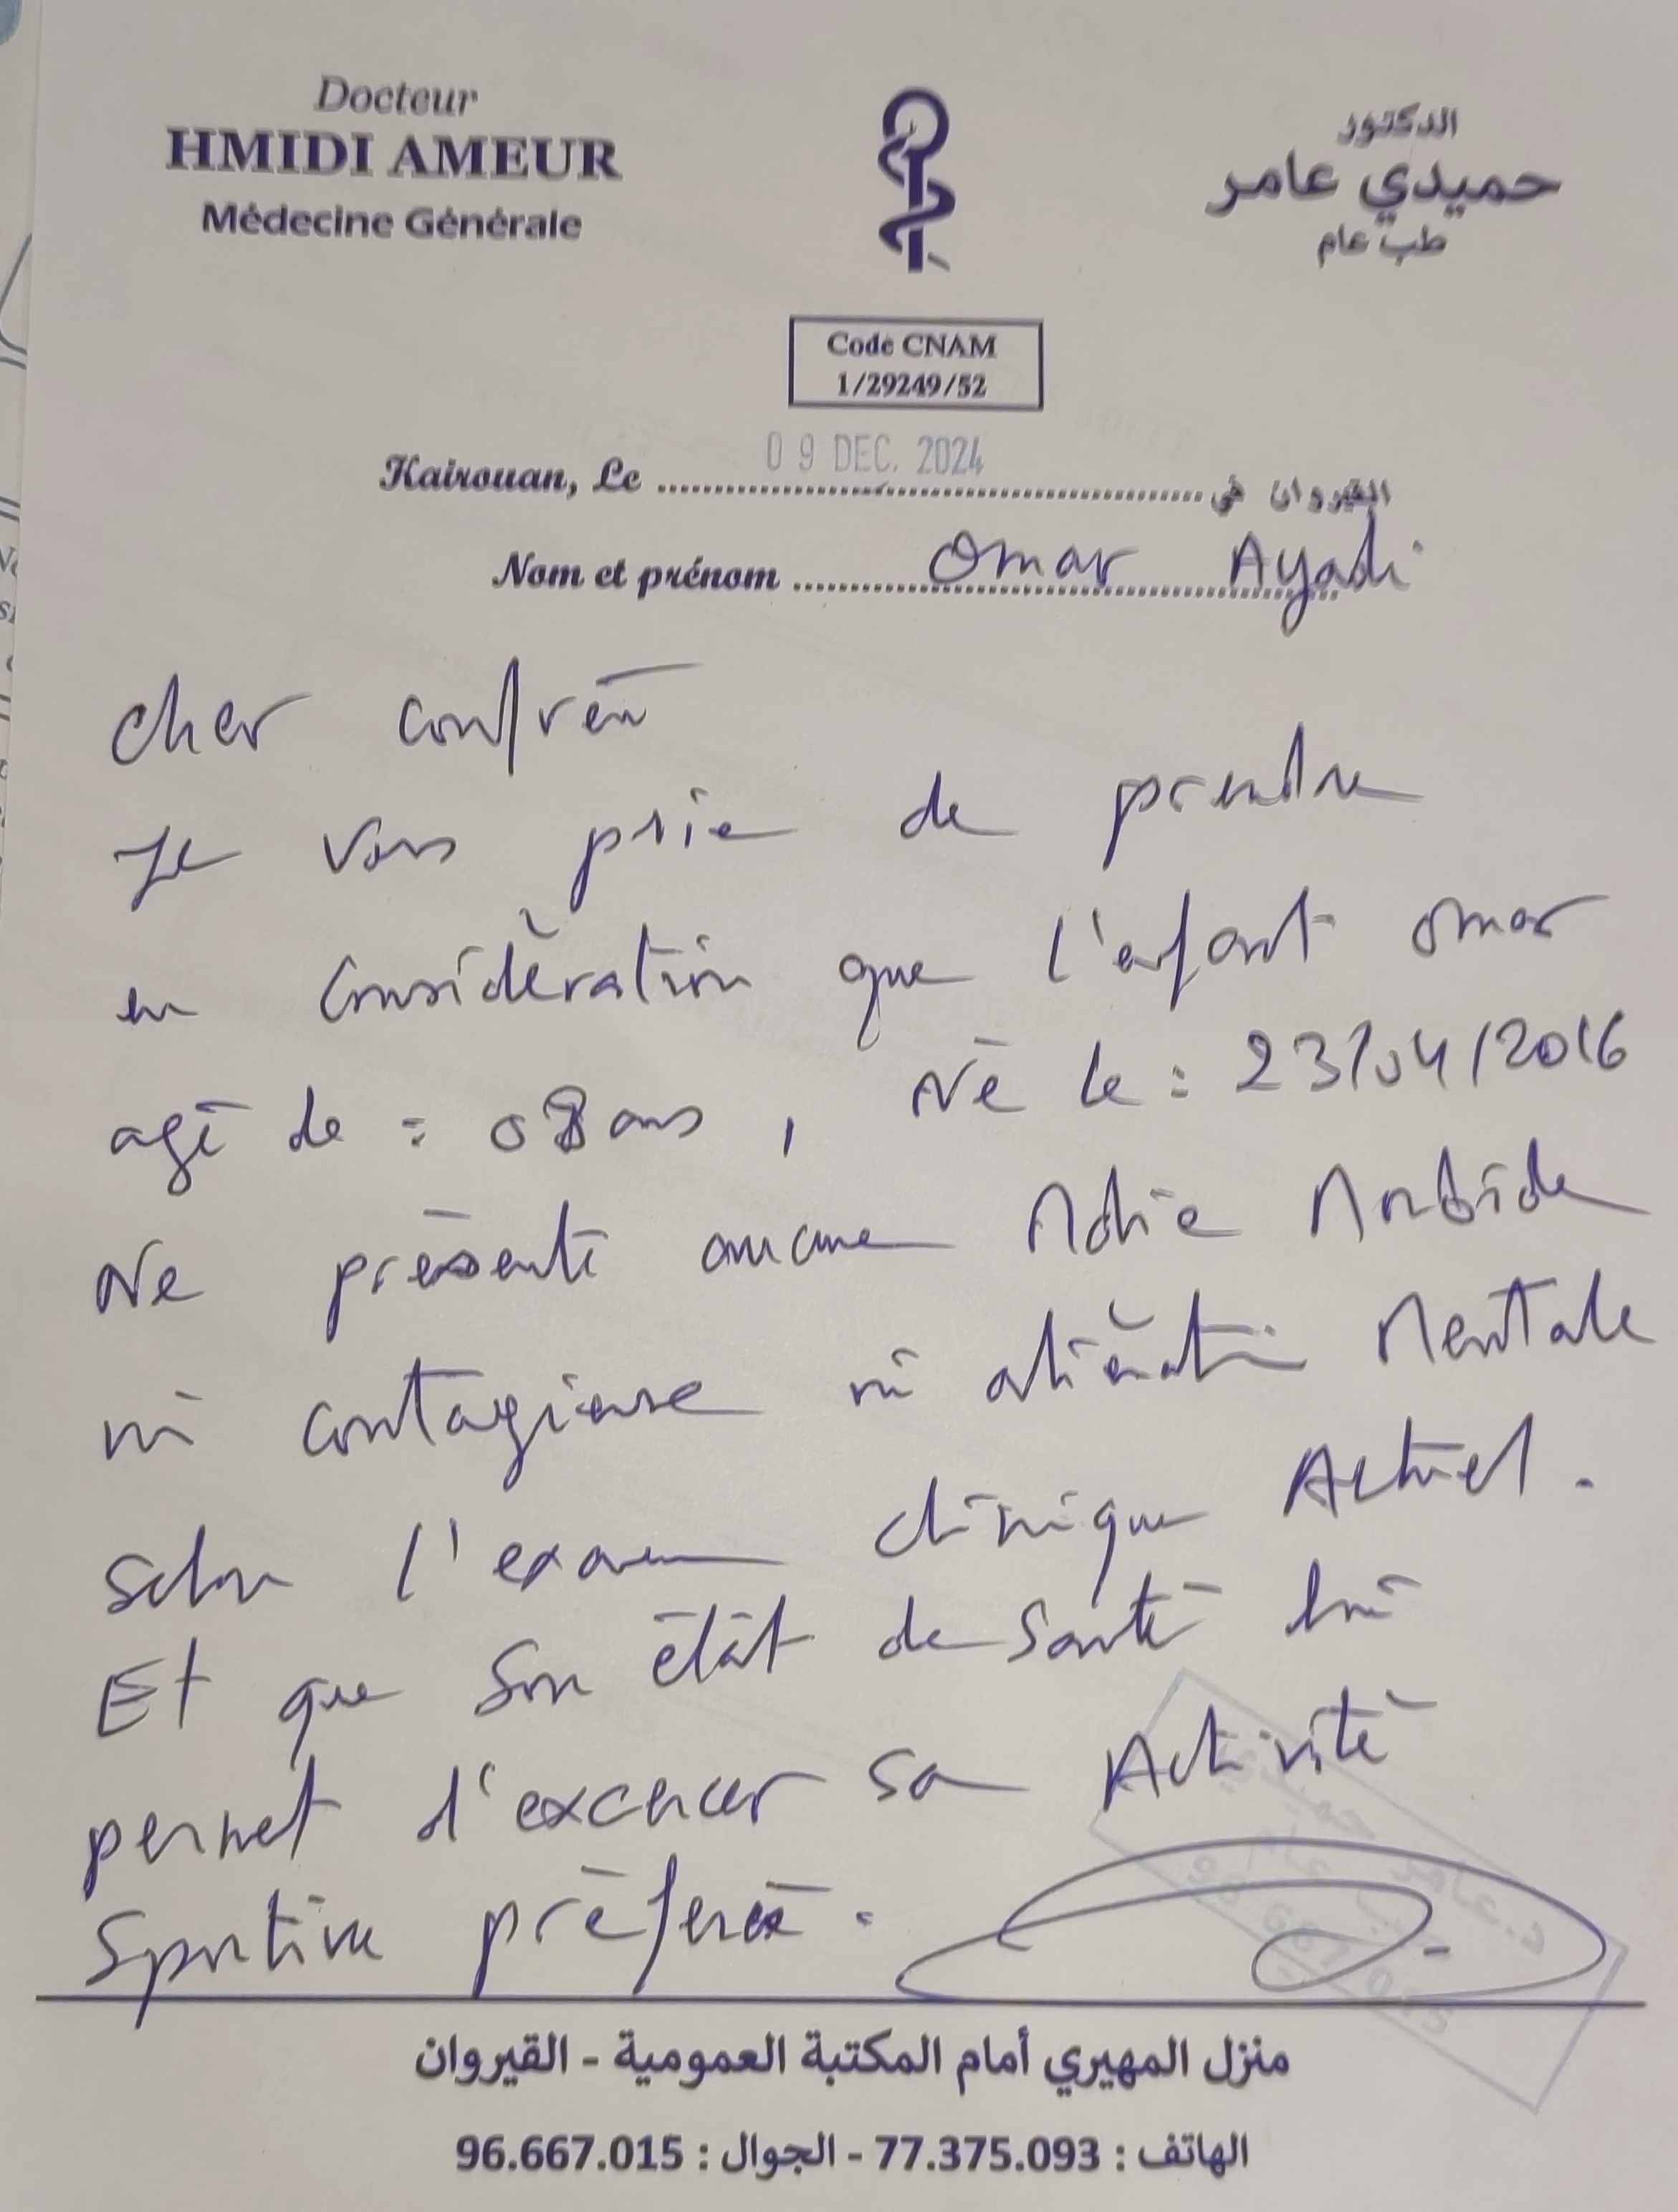 Docteur
HMIDI AMEUR
Médecine Générale
الدكتور
حميدي عامر
طب عام
Code CNAM
1/29249/52
Kairouan, Le 09 DEC. 2024 القيروان في
Nom et prénom Omar Ayadi
cher confrère
Je vous prie de prendre
en considération que l'enfant Omar
agé de : 08 ans, Né le : 23/04/2016
Ne présente aucune Mdie Morbide
ni contagieuse ni aliénation Mentale
selon l'examen clinique Actuel.
Et que son état de santé lui
permet d'excercer sa Activité
Sportive préférée.
د. عامر حميدي
طب عام
96 667 015
منزل المهيري أمام المكتبة العمومية - القيروان
الهاتف : 77.375.093 - الجوال : 96.667.015